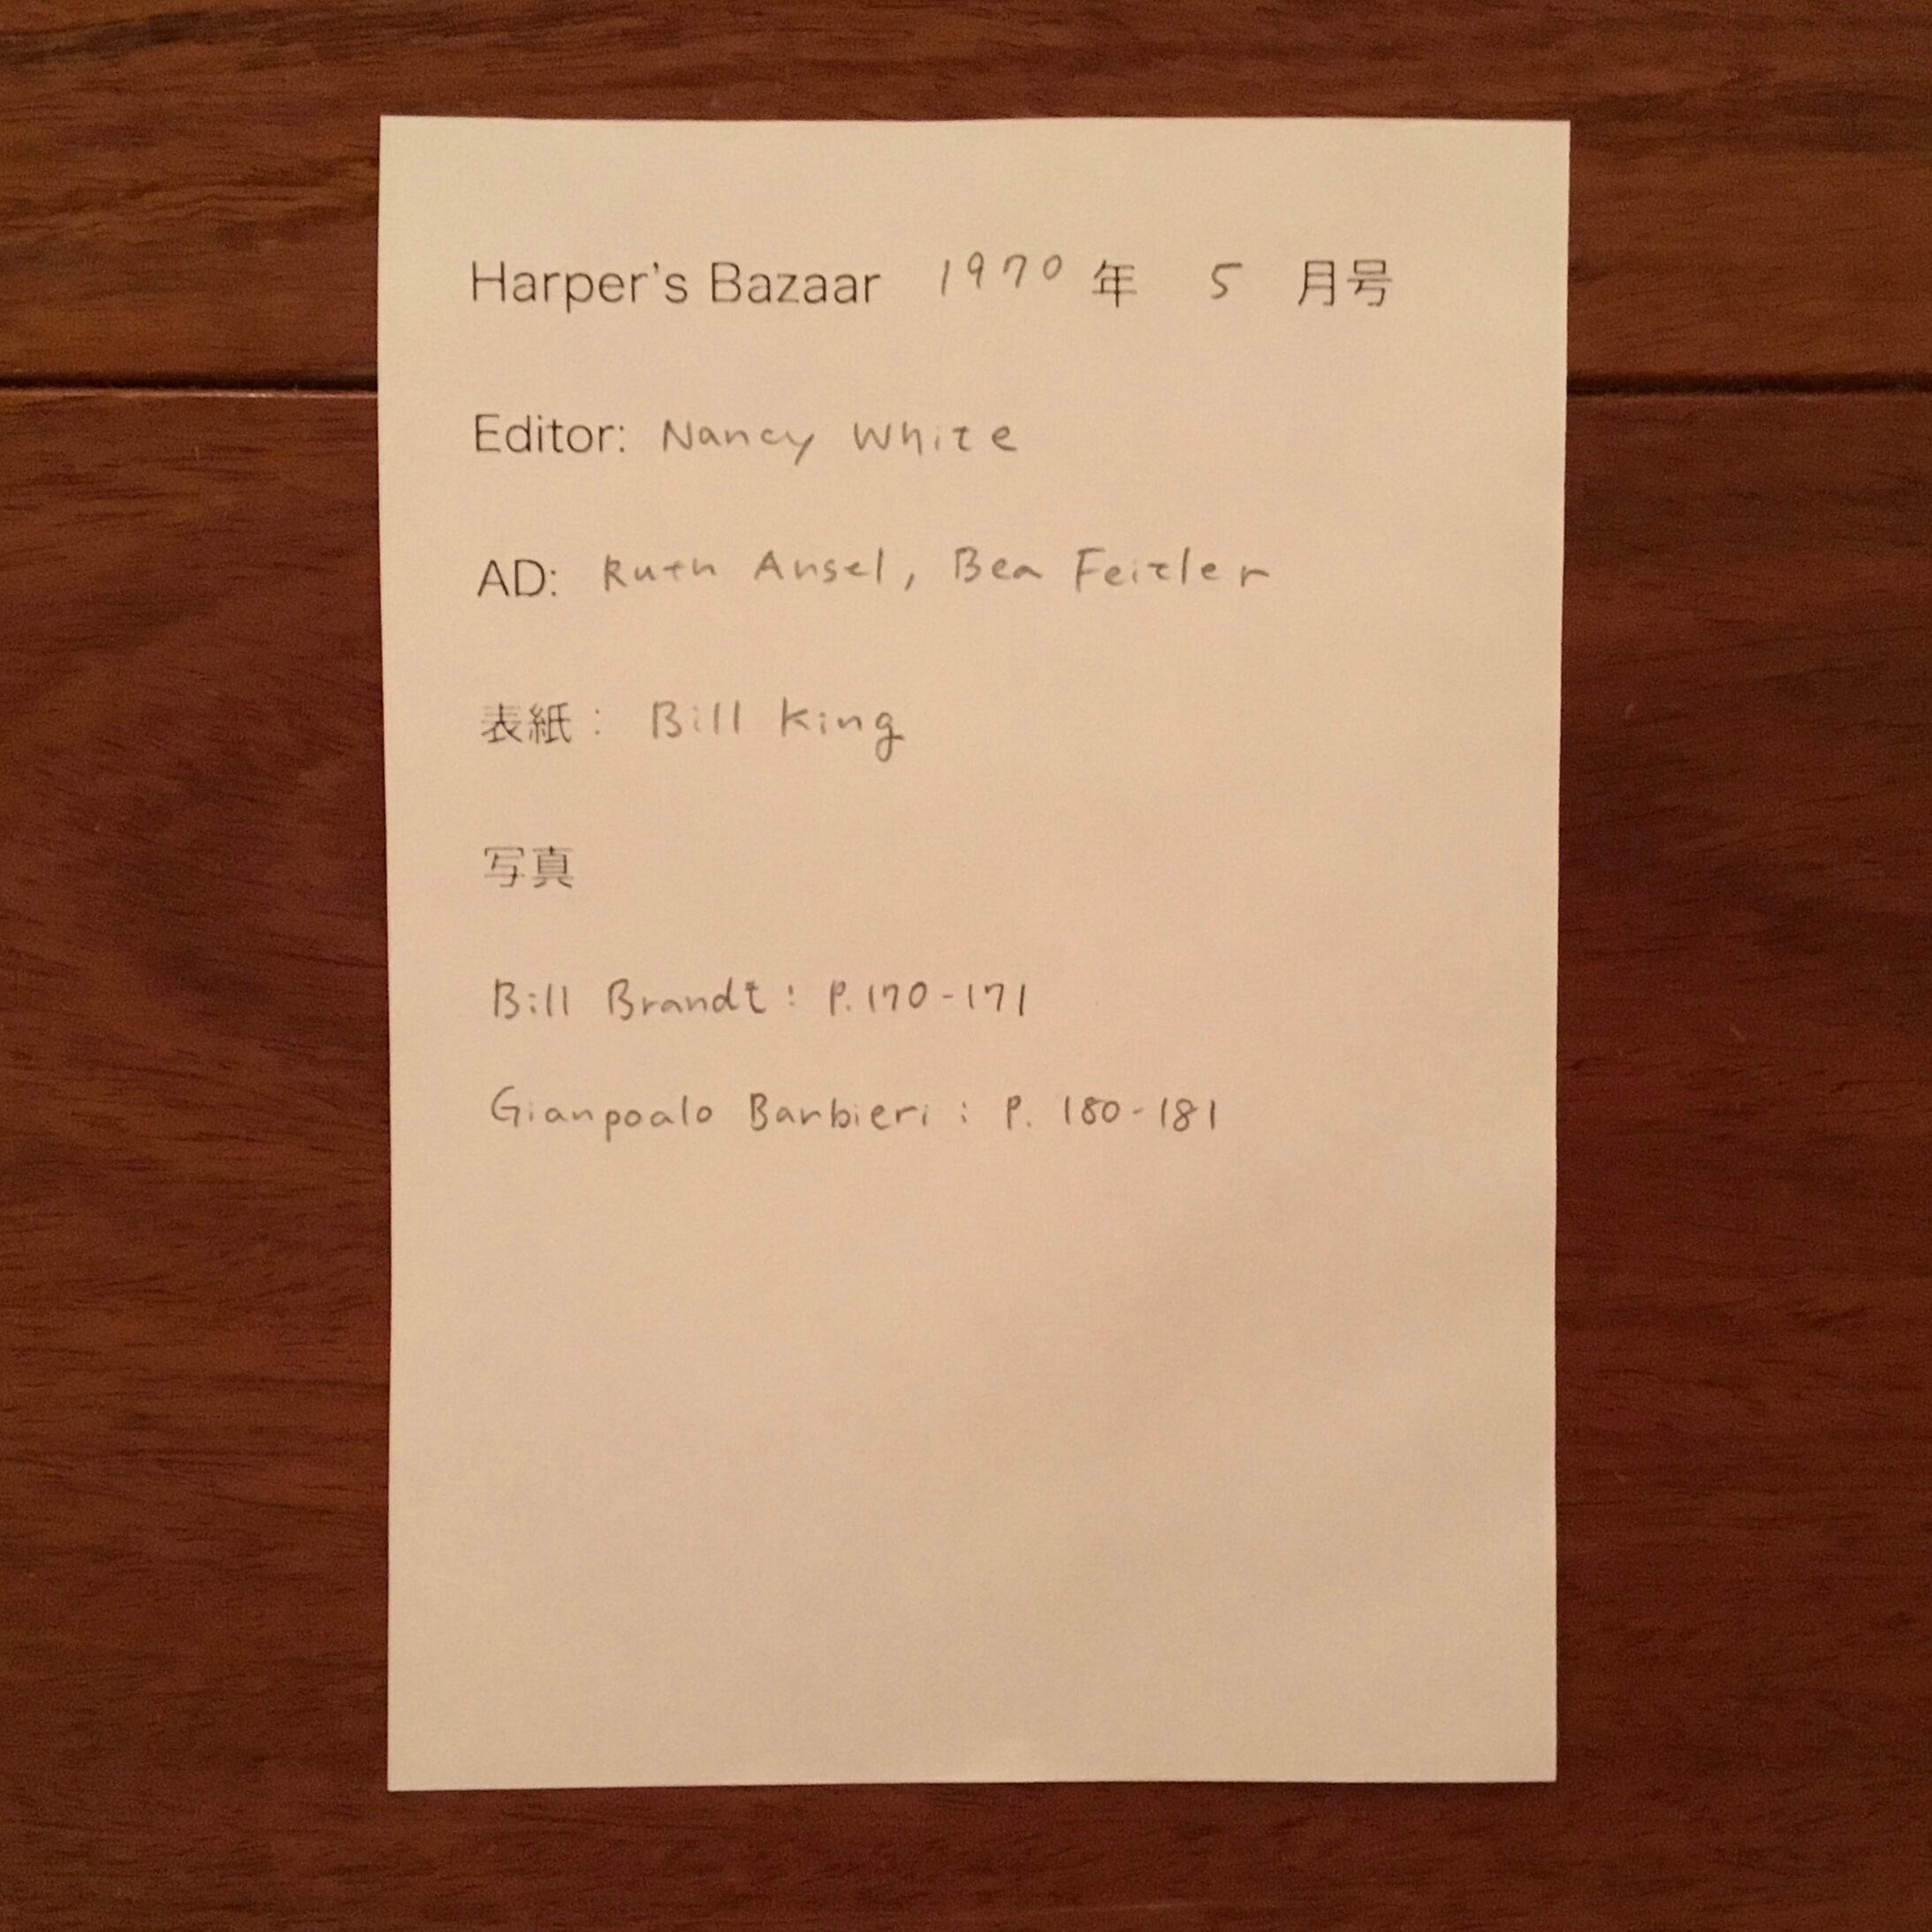 Harper's Bazaar 1970 年 5 月号
Editor: Nancy White
AD: Ruth Ansel, Bea Feitler
表紙: Bill King
写真
Bill Brandt: P.170-171
Gianpoalo Barbieri: P. 180-181